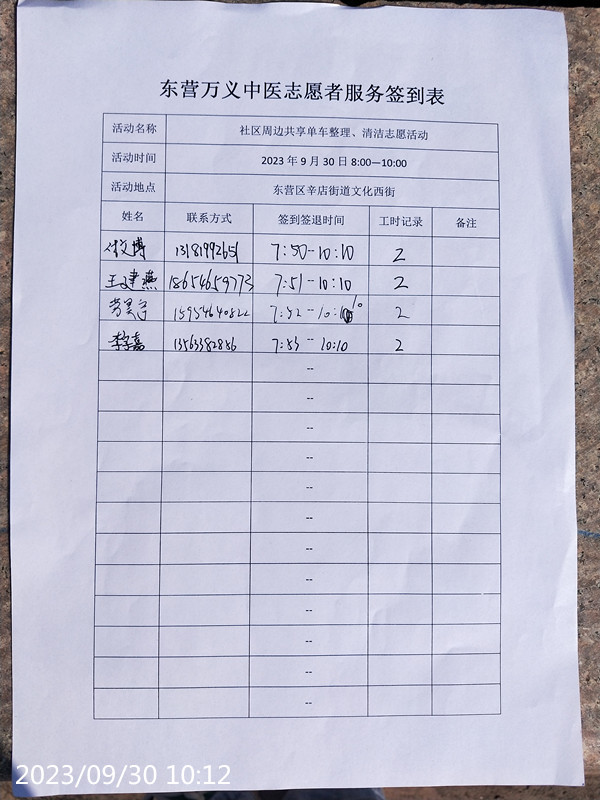 东营万义中医志愿者服务签到表
活动名称 社区周边共享单车整理、清洁志愿活动
活动时间 2023 年 9 月 30 日 8:00—10:00
活动地点 东营区辛店街道文化西街
姓名 联系方式 签到签退时间 工时记录 备注
博 13181992651 7:50--10:10 2
王建燕 18654659773 7:51--10:10 2
15954640822 7:52--10:10 2
李嘉 13563382886 7:53--10:10 2
--
--
--
--
--
--
--
--
--
--
--
--
2023/09/30 10:12